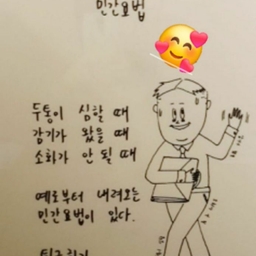 민간요법
두통이 심할 때
감기가 왔을 때
소화가 안 될 때
예로부터 내려오는
민간요법이 있다.